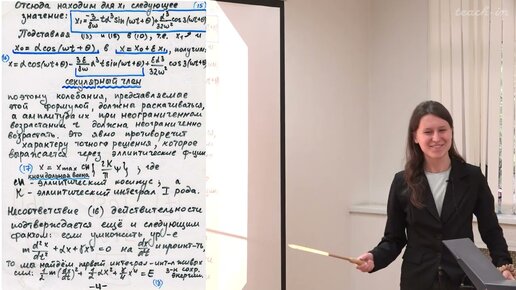 Отсюда находим для x₁ следующее (15)
значение: x₁ = -3/8ω tα³ sin(ωt+θ) + α³/32ω² cos3(ωt+θ)
Подставляя (13) и (18) в (10), т.е. x₁ и
x₀ = α cos(ωt+θ), в x = x₀ + εx₁, получим:
x = α cos(ωt+θ) - 3ε/8ω α³ t sin(ωt+θ) + εα³/32ω² cos3(ωt+θ)
секулярный член
поэтому колебания, представляемые
этой формулой, должна раскачиваться,
а амплитуда их при неограниченном
возрастании t должна неограниченно
возрастать. Это явно противоречит
характеру точного решения, которое
выражается через эллиптические ф-ции
(17) x = x max cn {2K/π ψ}; где
кноидальная волна
cn - эллиптический косинус; а
K - эллиптический интеграл I рода.
Несоответствие (16) действительности
подтверждается ещё и следующим
фактом: если умножить ур-е
m d²x/dt² + αx + γx³ = 0 на dx/dt и проинт-ть,
то мы найдём первый интеграл - инт-л живых
сил: 1/2 m(dx/dt)² + 1/2 αx² + γ/4 x⁴ = E з-н сохр. энергии.
-4- (18)
teach-in